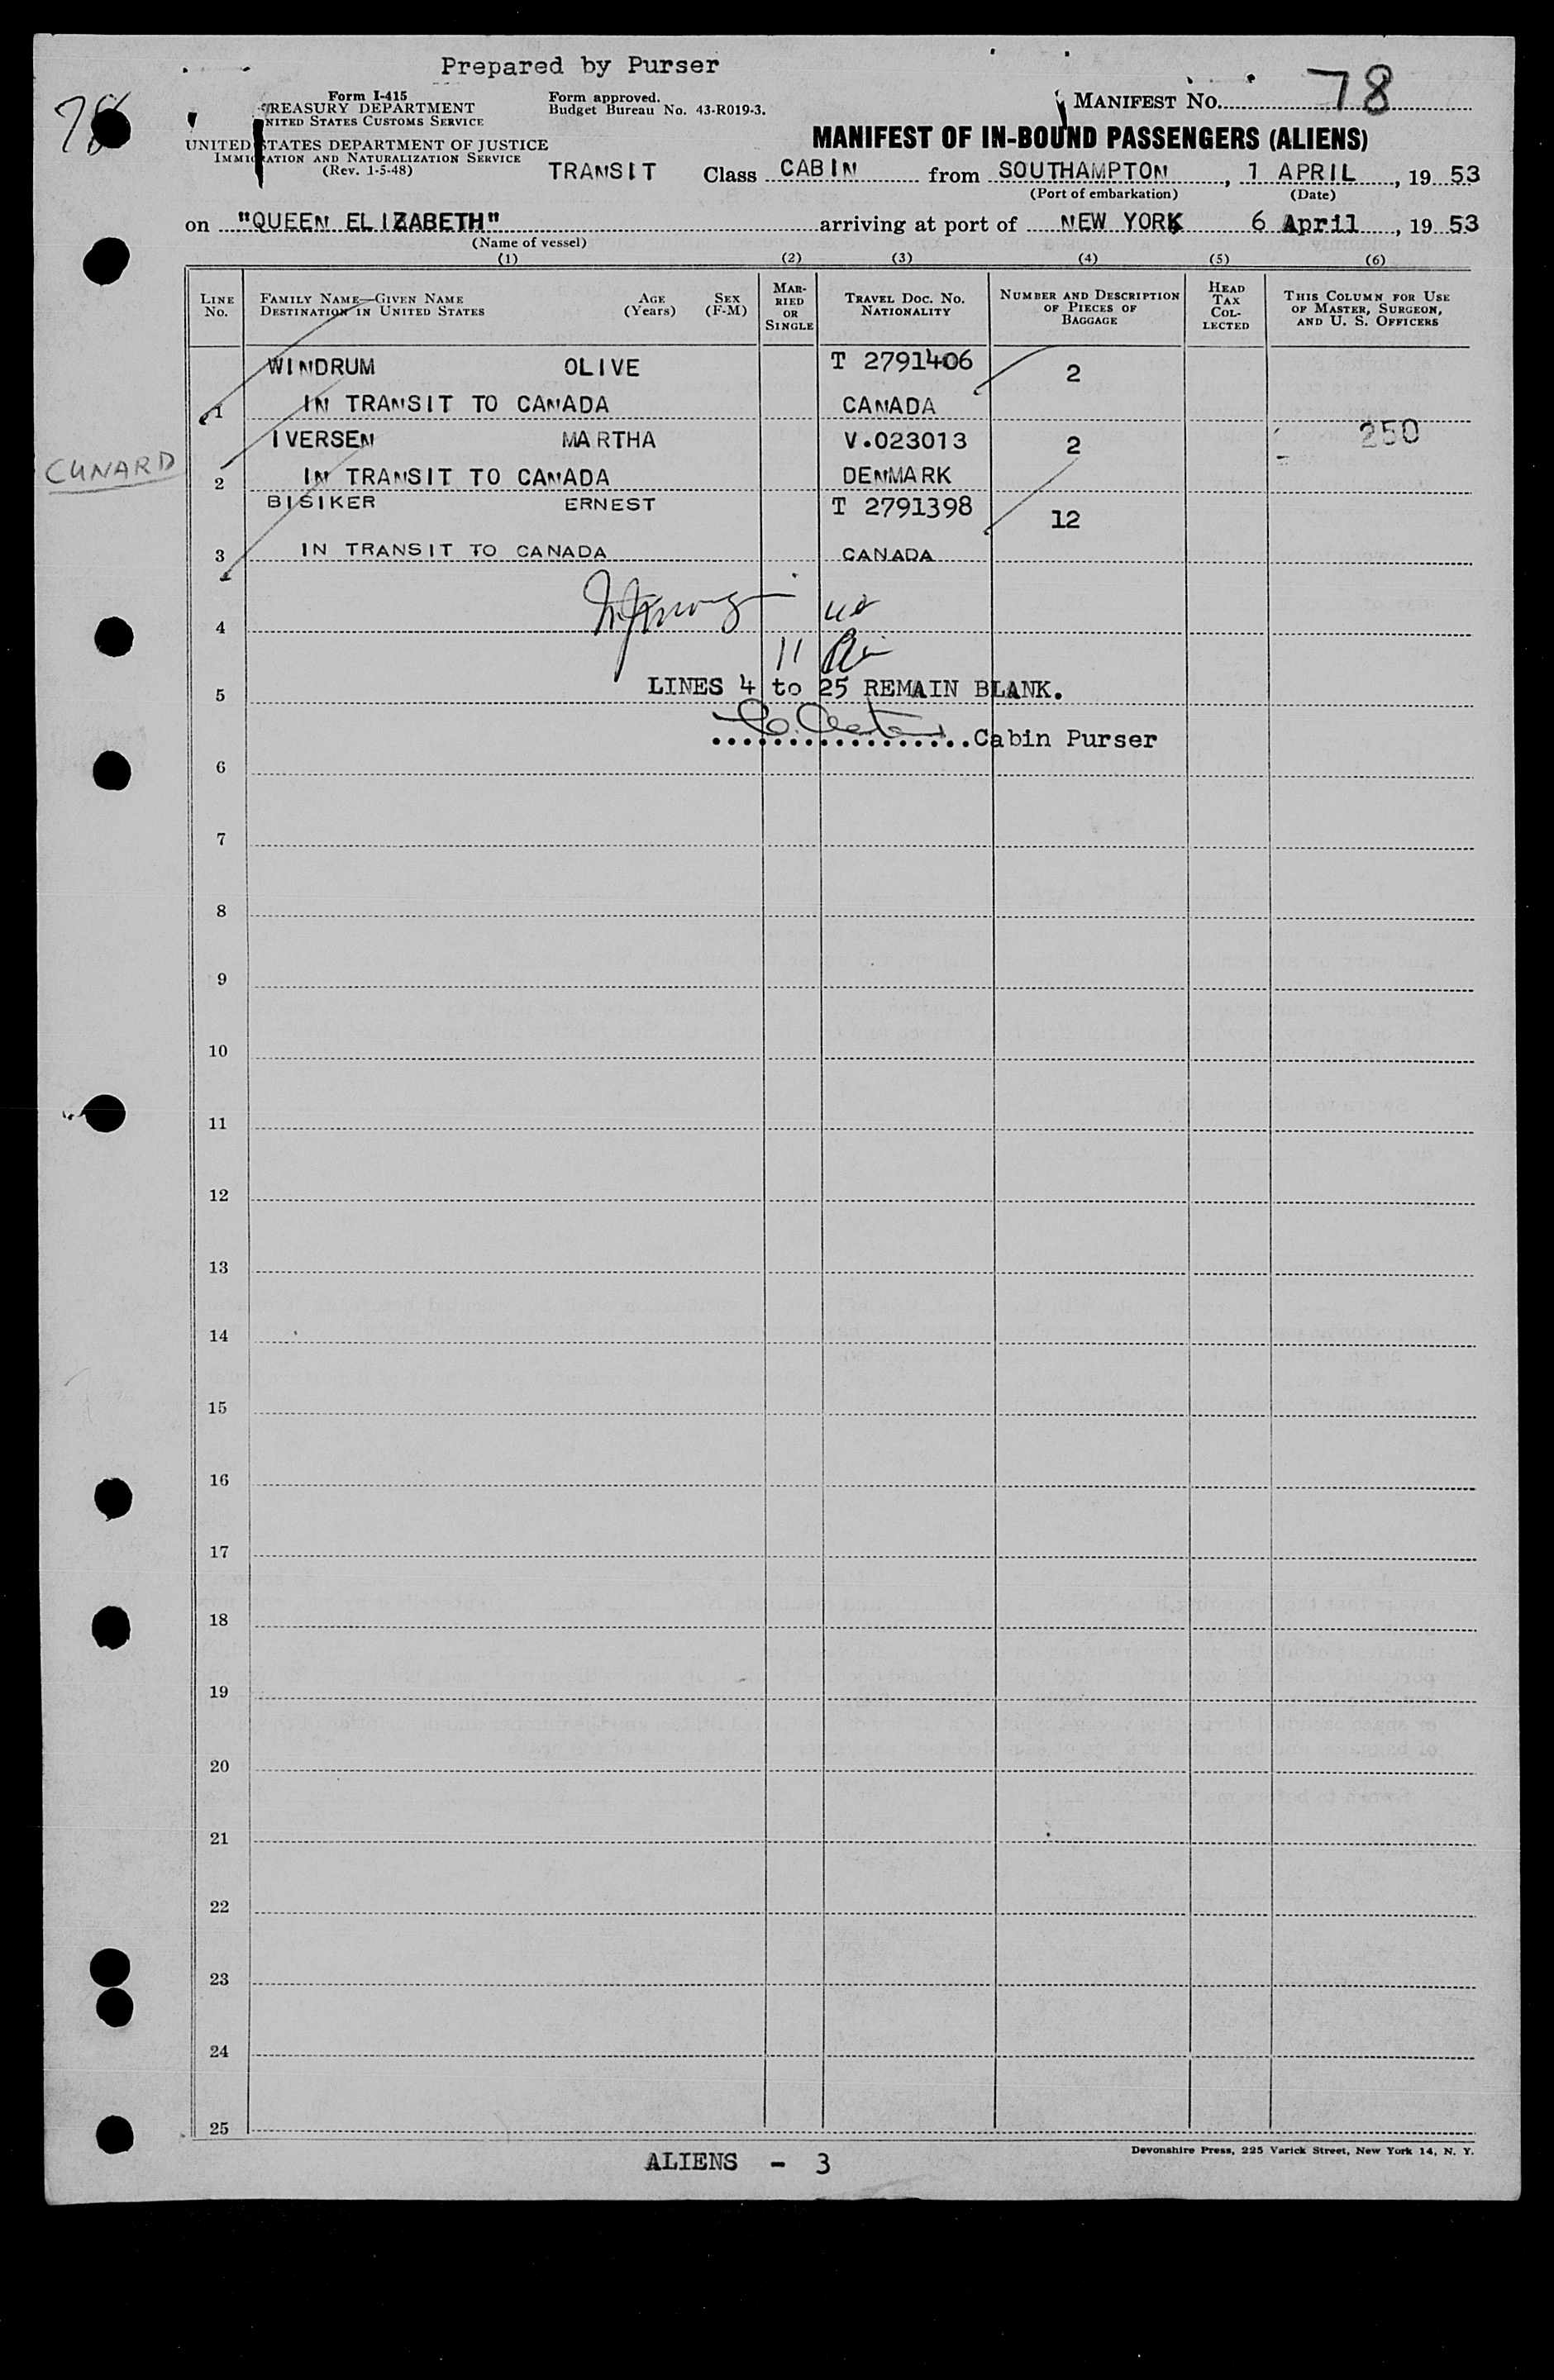 Prepared by Purser
78
Form I-415
TREASURY DEPARTMENT
UNITED STATES CUSTOMS SERVICE
UNITED STATES DEPARTMENT OF JUSTICE
IMMIGRATION AND NATURALIZATION SERVICE
(Rev. 1-5-48)
Form approved.
Budget Bureau No. 43-R019-3.
MANIFEST No. 78
MANIFEST OF IN-BOUND PASSENGERS (ALIENS)
TRANSIT Class CABIN from SOUTHAMPTON, 1 APRIL, 19 53
(Port of embarkation) (Date)
on "QUEEN ELIZABETH" arriving at port of NEW YORK 6 April, 19 53
(Name of vessel)
(1) (2) (3) (4) (5) (6)
LINE No. FAMILY NAME—GIVEN NAME DESTINATION IN UNITED STATES AGE (Years) SEX (F-M) MARRIED OR SINGLE TRAVEL DOC. NO. NATIONALITY NUMBER AND DESCRIPTION OF PIECES OF BAGGAGE HEAD TAX COLLECTED THIS COLUMN FOR USE OF MASTER, SURGEON, AND U. S. OFFICERS
WINDRUM OLIVE T 2791406 2
1 IN TRANSIT TO CANADA CANADA
IVERSEN MARTHA V.023013 2 250
CUNARD
2 IN TRANSIT TO CANADA DENMARK
BISIKER ERNEST T 2791398 12
3 IN TRANSIT TO CANADA CANADA
4
11
5 LINES 4 to 25 REMAIN BLANK.
Cabin Purser
6
7
8
9
10
11
12
13
14
15
16
17
18
19
20
21
22
23
24
25
ALIENS - 3
Devonshire Press, 225 Varick Street, New York 14, N. Y.